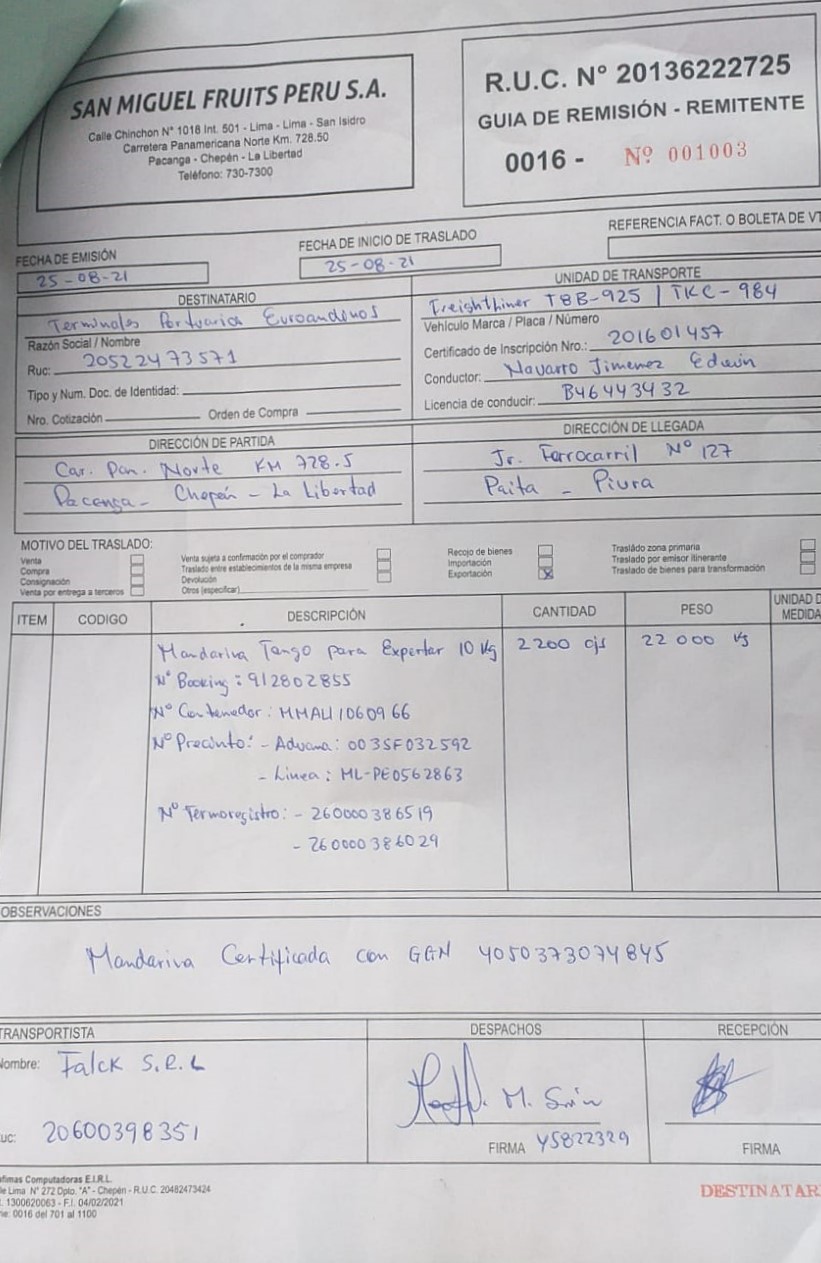 SAN MIGUEL FRUITS PERU S.A.
Calle Chinchon N° 1018 Int. 501 - Lima - Lima - San Isidro
Carretera Panamericana Norte Km. 728.50
Pacanga - Chepén - La Libertad
Teléfono: 730-7300
R.U.C. N° 20136222725
GUIA DE REMISIÓN - REMITENTE
0016 - Nº 001003
FECHA DE EMISIÓN
25-08-21
FECHA DE INICIO DE TRASLADO
25-08-21
REFERENCIA FACT. O BOLETA DE VT
DESTINATARIO
Terminales Portuarios Euroandinos
Razón Social / Nombre
Ruc: 20522473571
Tipo y Num. Doc. de Identidad:
Nro. Cotización Orden de Compra
UNIDAD DE TRANSPORTE
Freightliner T8B-925 / TKC-984
Vehículo Marca / Placa / Número
Certificado de Inscripción Nro.: 201601457
Conductor: Navarro Jimenez Edwin
Licencia de conducir: B46443432
DIRECCIÓN DE PARTIDA
Car. Pan. Norte KM 728.5
Pacanga - Chepén - La Libertad
DIRECCIÓN DE LLEGADA
Jr. Ferrocarril N° 127
Paita - Piura
MOTIVO DEL TRASLADO:
Venta
Compra
Consignación
Venta por entrega a terceros
Venta sujeta a confirmación por el comprador
Traslado entre establecimientos de la misma empresa
Devolución
Otros (especificar)
Recojo de bienes
Importación
Exportación X
Traslado zona primaria
Traslado por emisor itinerante
Traslado de bienes para transformación
ITEM CODIGO DESCRIPCIÓN CANTIDAD PESO UNIDAD D MEDIDA
Mandarina Tango para Exportar 10 Kg 2200 cjs 22 000 Kg
N° Booking: 912802855
N° Contenedor: MMAU1060966
N° Precinto: - Aduana: 003SF032592
- Linea: ML-PE0562863
N° Termoregistro: - 260000386519
- 260000386029
OBSERVACIONES
Mandarina Certificada con GGN 4050373074845
TRANSPORTISTA
Nombre: Falck S.R.L
UC: 20600398351
DESPACHOS
FIRMA 45822329
RECEPCIÓN
FIRMA
afimas Computadoras E.I.R.L.
le Lima N° 272 Dpto. "A" - Chepén - R.U.C. 20482473424
. 1300620063 - F.I. 04/02/2021
ie: 0016 del 701 al 1100
DESTINATARI